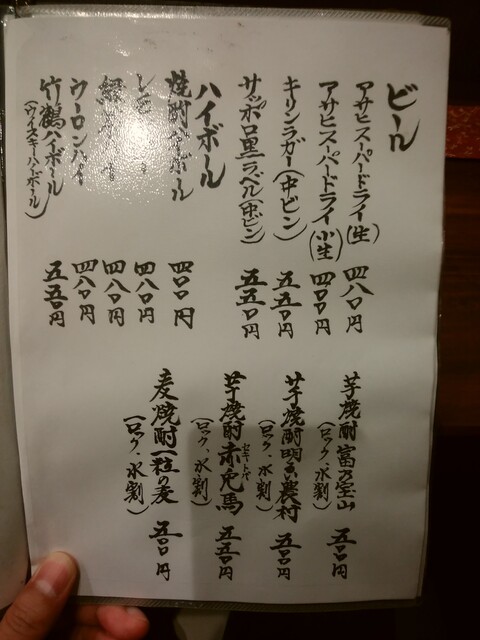 ビール
アサヒスーパードライ(生) 四八〇円
アサヒスーパードライ(小生) 四〇〇円
キリンラガー(中ビン) 五五〇円
サッポロ黒ラベル(中ビン) 五五〇円
ハイボール
焼酎ハイボール 四〇〇円
四八〇円
緑 四八〇円
ウーロンハイ 四八〇円
竹鶴ハイボール 五五〇円
(ウイスキーハイボール)
芋焼酎 富乃宝山 五〇〇円
(ロック、水割)
芋焼酎 明るい農村 五〇〇円
(ロック、水割)
芋焼酎 赤兎馬 五五〇円
セキトバ
(ロック、水割)
麦焼酎 一粒の麦 五〇〇円
(ロック、水割)